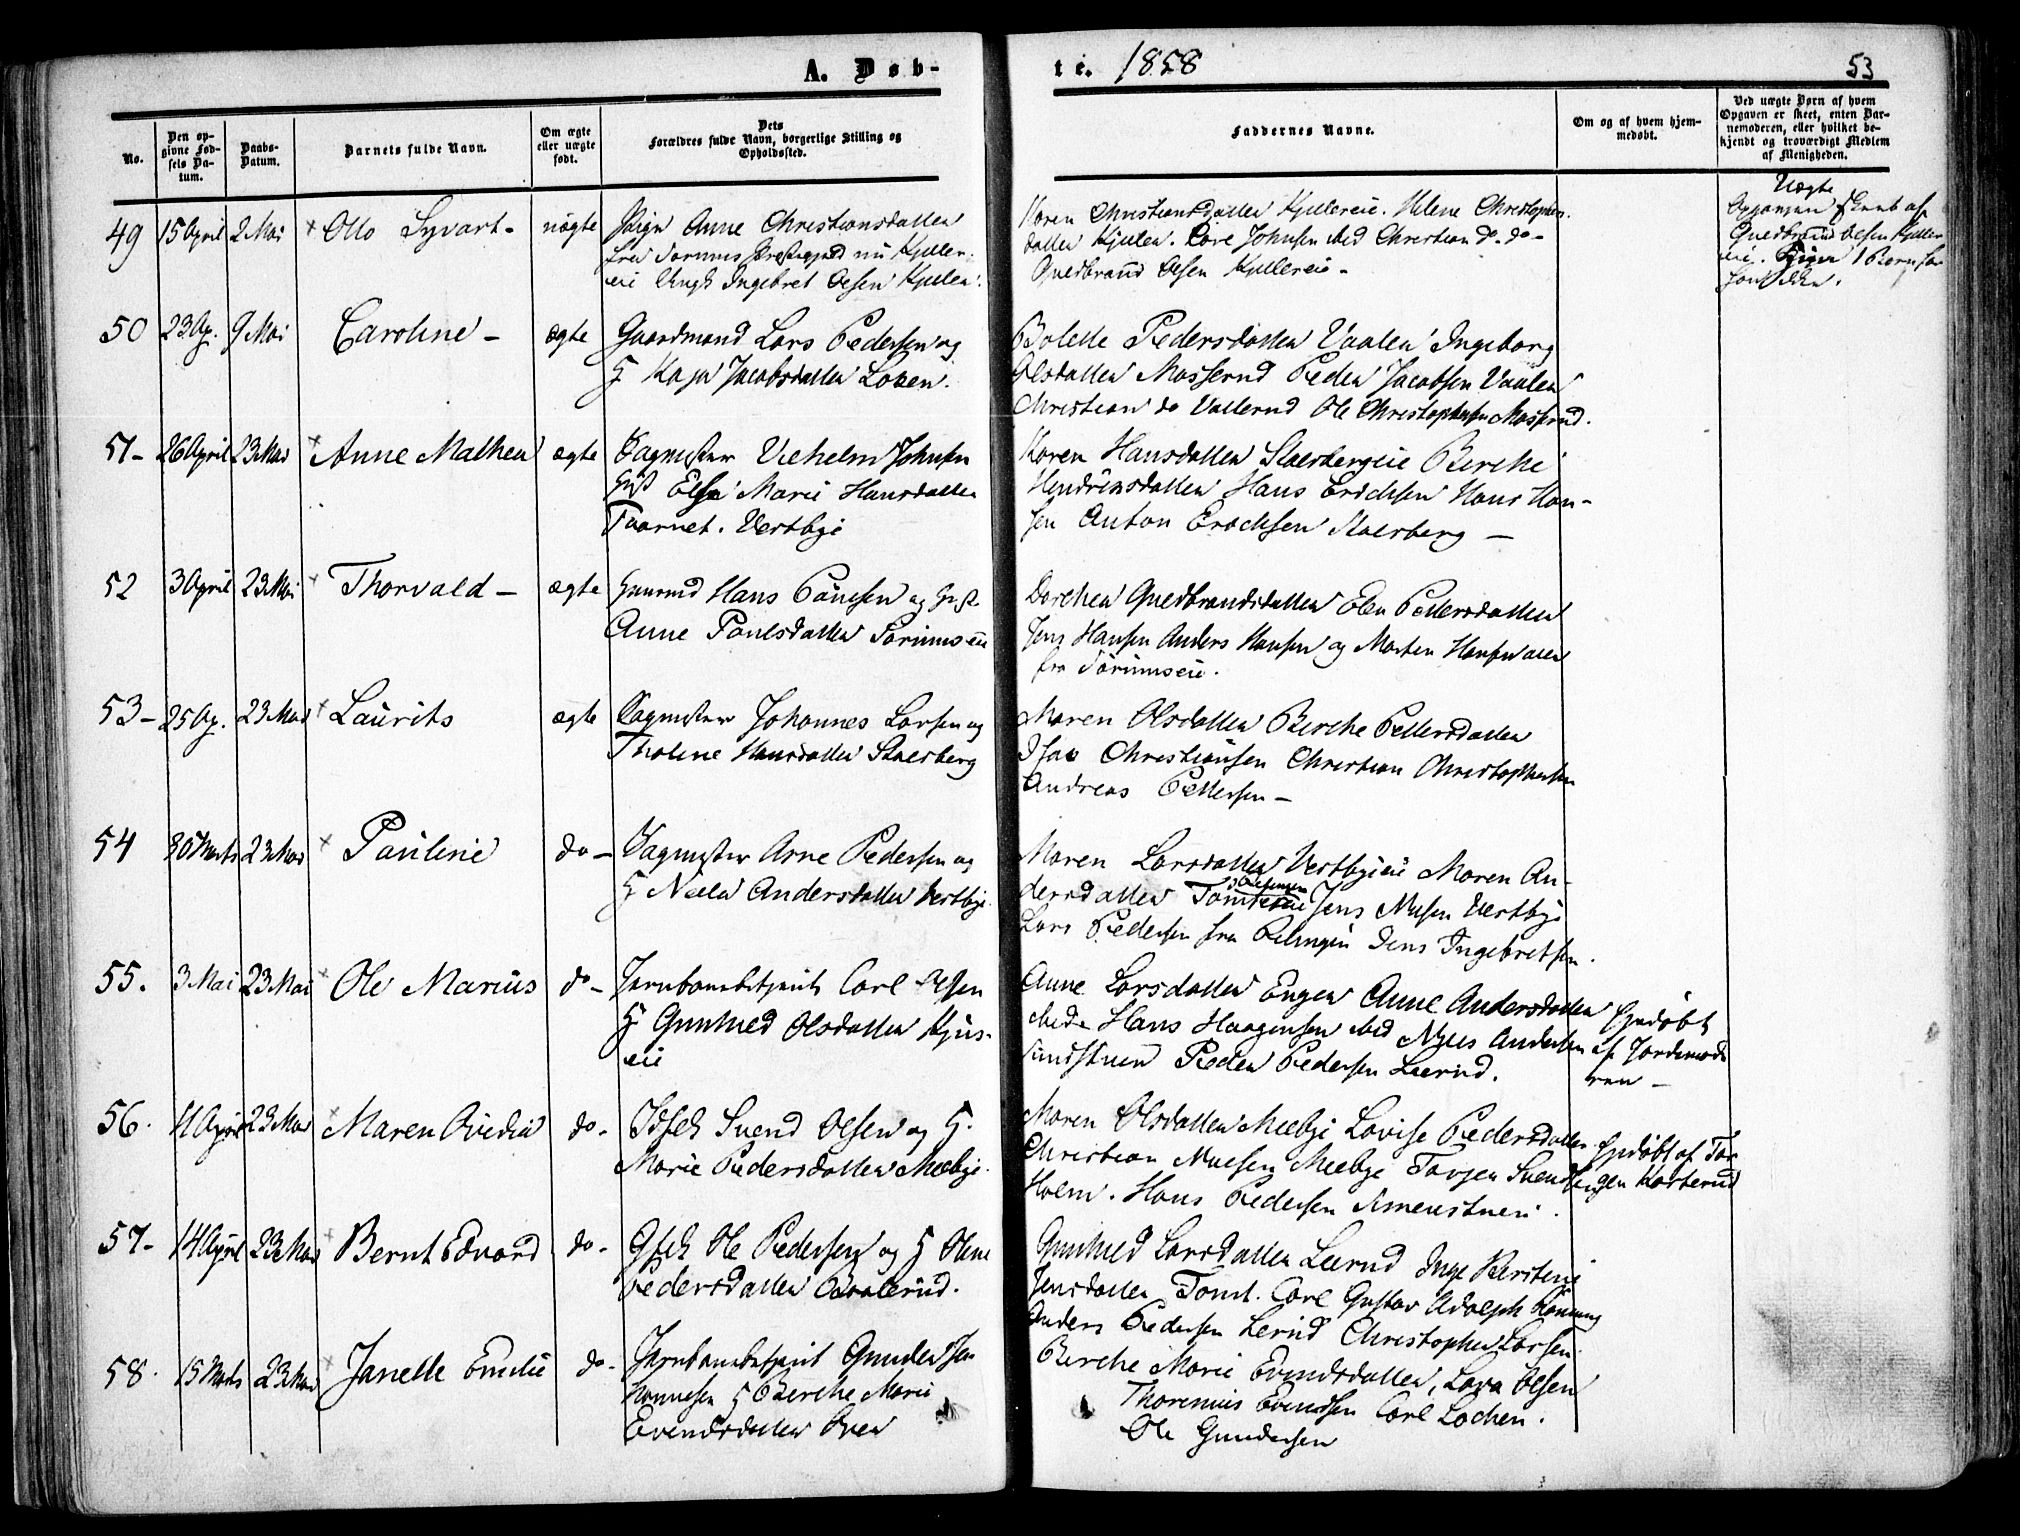 A. Døb-
te. 1858
53
No.
Den op-
givne Fød-
sels Da-
tum.
Daabs-
Datum.
Barnets fulde Navn.
Om ægte
eller uægte
født.
Dets
Forældres fulde Navn, borgerlige Stilling og
Opholdssted.
Faddernes Navne.
Om og af hvem hjem-
medøbt.
Ved uægte Børn af hvem
Opgaven er skeet, enten Bar-
nemoderen, eller hvilket be-
kjendt og troværdigt Medlem
af Menigheden.
49 15 April 2 Mai Otto Syvart- uægte Pige Anne Christiansdatter
fra Sørums Præstegaard nu Kjeller-
eie Ungk Ingebret Olsen Kjeller.
Karen Christiansdatter Kjellereie. Helene Christophers-
datter Kjeller. Lars Johnsen ibid Christian do. do-
Guldbrand Olsen Kjellereie-
Uægte
Opgaven skeet af
Guldbrand Olsen Kjeller-
eie.
50 23 Ap. 9 Mai Caroline- ægte Gaardmand Lars Pedersen og
H Kaja Jacobsdatter Losen.
Bolette Pedersdatter Vaaler Ingeborg
Olsdatter Masserud Peder Jacobsen Vaaler
Christian do Vallerud Ole Christophersen Masserud.
51- 26 April 23 Mai Anne Mathea ægte Sagmester Vilhelm Johnsen
Hust Else Marie Hansdatter
Taarnet. Vestbye
Karen Hansdatter Staesbergeie Berthe
Hendriksdatter Hans Erichsen Hans Han-
sen Anton Erichsen Staesberg-
52 3 April 23 Mai Thorvald- ægte Huusmd Hans Paulsen og Hust
Anne Paulsdatter Sørumseie
Dorthea Guldbrandsdatter Elen Pettersdatter
Jens Hansen Anders Hansen og Morten Hansen alle
fra Sørumseie.
53- 25 Ap. 23 Mai Laurits ægte Sagmester Johannes Larsen og
Tholine Hansdatter Staesberg
Maren Olsdatter Berthe Pettersdatter
Isak Christiansen Christian Christophersen
Andreas Pettersen-
54 30 Marts 23 Mai Pauline do- Sagmester Arne Pedersen og
H Neela Andersdatter Vestbye.
Maren Larsdatter Vestbyeie Maren An-
dersdatter Tomtereie Jens Nilsen Vestbye
Lars Pedersen fra Jens Ingebretsen.
55. 3 Mai 23 Mai Ole Marius do- Jernbanebetjent Carl Olsen
H Gunhild Olsdatter Kjus-
eie
Anne Larsdatter Engen Anne Andersdatter
ibid. Hans Haagensen ibid Niels Andersen
Sundstuen Peder Pedersen Leerud.
Hjemdøbt
af Jordemode
ren-
56. 11 April 23 Mai Maren Ovidia do. Svend Olsen og H.
Marie Pedersdatter Melbye.
Maren Olsdatter Melbye Lovise Pedersdatter
Christian Nielsen Melbye Torger Svendsen
Holm. Hans Pedersen
Hjemdøbt af Tor
gen Korterud
57- 14 April 23 Mai Bernt Edvard do. Ole Pedersen og H Oline
Pedersdatter Braaterud.
Gunhild Larsdatter Leerud Inge Kirstine
Jensdatter Tomt. Carl Gustav Adolph Rønning
Anders Pedersen Lerud Christopher Larsen.
58. 15 Marts 23 Mai Janette Emilie do- Jernbanebetjent Gunder Jo-
hannesen H Berthe Marie
Evensdatter
Berthe Marie Evensdatter, Lava Olsen
Thorenius Evensen Carl Lochen.
Ole Gundersen